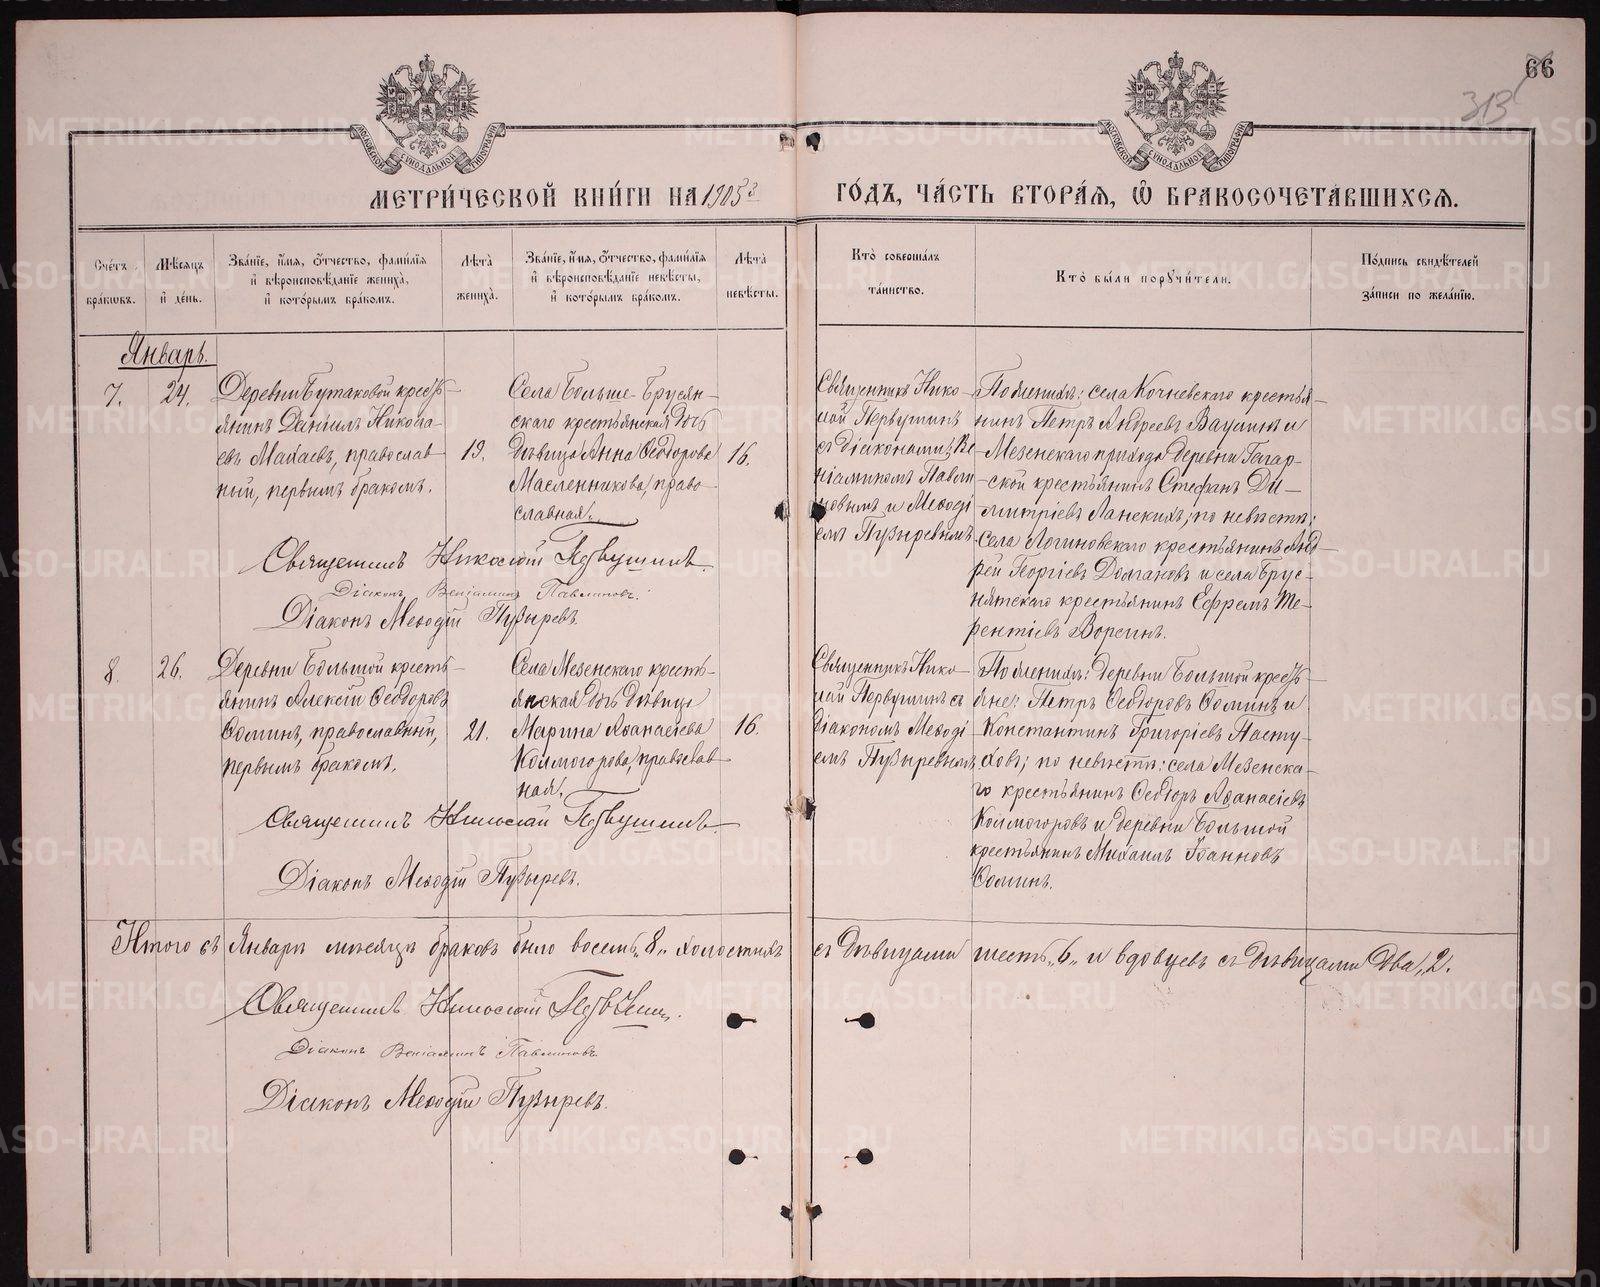 66
313
МОСКОВСКОЙ СѴНОДАЛЬНОЙ ТИПОГРАФІИ
МОСКОВСКОЙ СѴНОДАЛЬНОЙ ТИПОГРАФІИ
МЕТРИ́ЧЕСКОЙ КНИ́ГИ НА 1905й
ГО́ДЪ, ЧА́СТЬ ВТОРА́Я, Ѡ҆ БРАКОСОЧЕТА́ВШИХСЯ.
Сче́тъ бра́ковъ.
Мѣ́сяцъ и҆ де́нь.
Зва́нїе, и҆́мя, ѻ҆́тчество, фами́лїя и҆ вѣроисповѣ́данїе жениха̀, и҆ кото́рымъ бра́комъ.
Лѣ́та жениха̀.
Зва́нїе, и҆́мя, ѻ҆́тчество, фами́лїя и҆ вѣроисповѣ́данїе невѣ́сты, и҆ кото́рымъ бра́комъ.
Лѣ́та невѣ́сты.
Кто̀ соверша́лъ та́инство.
Кто̀ бы́ли порꙋчи́тели.
По́дпись свидѣ́телей за́писи по жела́нїю.
Январь.
7.
24.
Деревни Бутаковой кресть-
янинъ Данiилъ Никола-
евъ Махаевъ, православ-
ный, первымъ бракомъ.
19.
Села Больше-Брусян-
скаго крестьянская дочь
Дѣвица Анна Ѳеодорова
Масленникова, право-
славная.
16.
Священникъ Нико-
лай Первушинъ
съ дiаконами: Ве-
нiаминомъ Павли-
новымъ и Меѳодi
емъ Пузыревымъ.
По женихѣ: села Кочневскаго крестья-
нинъ Петръ Андреевъ Ваулинъ и
Мезенскаго прихода деревни Гагар-
ской крестьянинъ Стефанъ Ди-
митрiевъ Ланскихъ; по невѣстѣ:
села Логиновскаго крестьянинъ Анд-
рей Георгiевъ Долгановъ и села Брус-
нятскаго крестьянинъ Ефремъ Те-
рентiевъ Воргинъ.
Священникъ Николай Первушинъ.
Дiаконъ Венiаминъ Павлиновъ.
Дiаконъ Меѳодiй Пузыревъ.
8.
26.
Деревни Большой кресть-
янинъ Алексiй Ѳеодоровъ
Ѳоминъ, православный,
первымъ бракомъ.
21.
Села Мезенскаго кресть-
янская дочь дѣвица
Марина Аѳанасiева
Колмогорова, православ-
ная.
16.
Священникъ Нико-
лай Первушинъ съ
дiакономъ Меѳодi
емъ Пузыревымъ.
По женихѣ: деревни Большой кресть-
яне: Петръ Ѳеодоровъ Ѳоминъ и
Константинъ Григорiевъ Пасту-
ховъ; по невѣстѣ: села Мезенска-
го крестьянинъ Ѳеодоръ Аѳанасiевъ
Колмогоровъ и деревни Большой
крестьянинъ Михаилъ Iоанновъ
Ѳоминъ.
Священникъ Николай Первушинъ.
Дiаконъ Меѳодiй Пузыревъ.
Итого въ Январѣ мѣсяцѣ браковъ было восемь „8„ холостыхъ съ дѣвицами шесть „6„ и вдовцевъ съ дѣвицами два „2.
Священникъ Николай Первушинъ.
Дiаконъ Венiаминъ Павлиновъ.
Дiаконъ Меѳодiй Пузыревъ.
METRIKI.GASO-URAL.RU